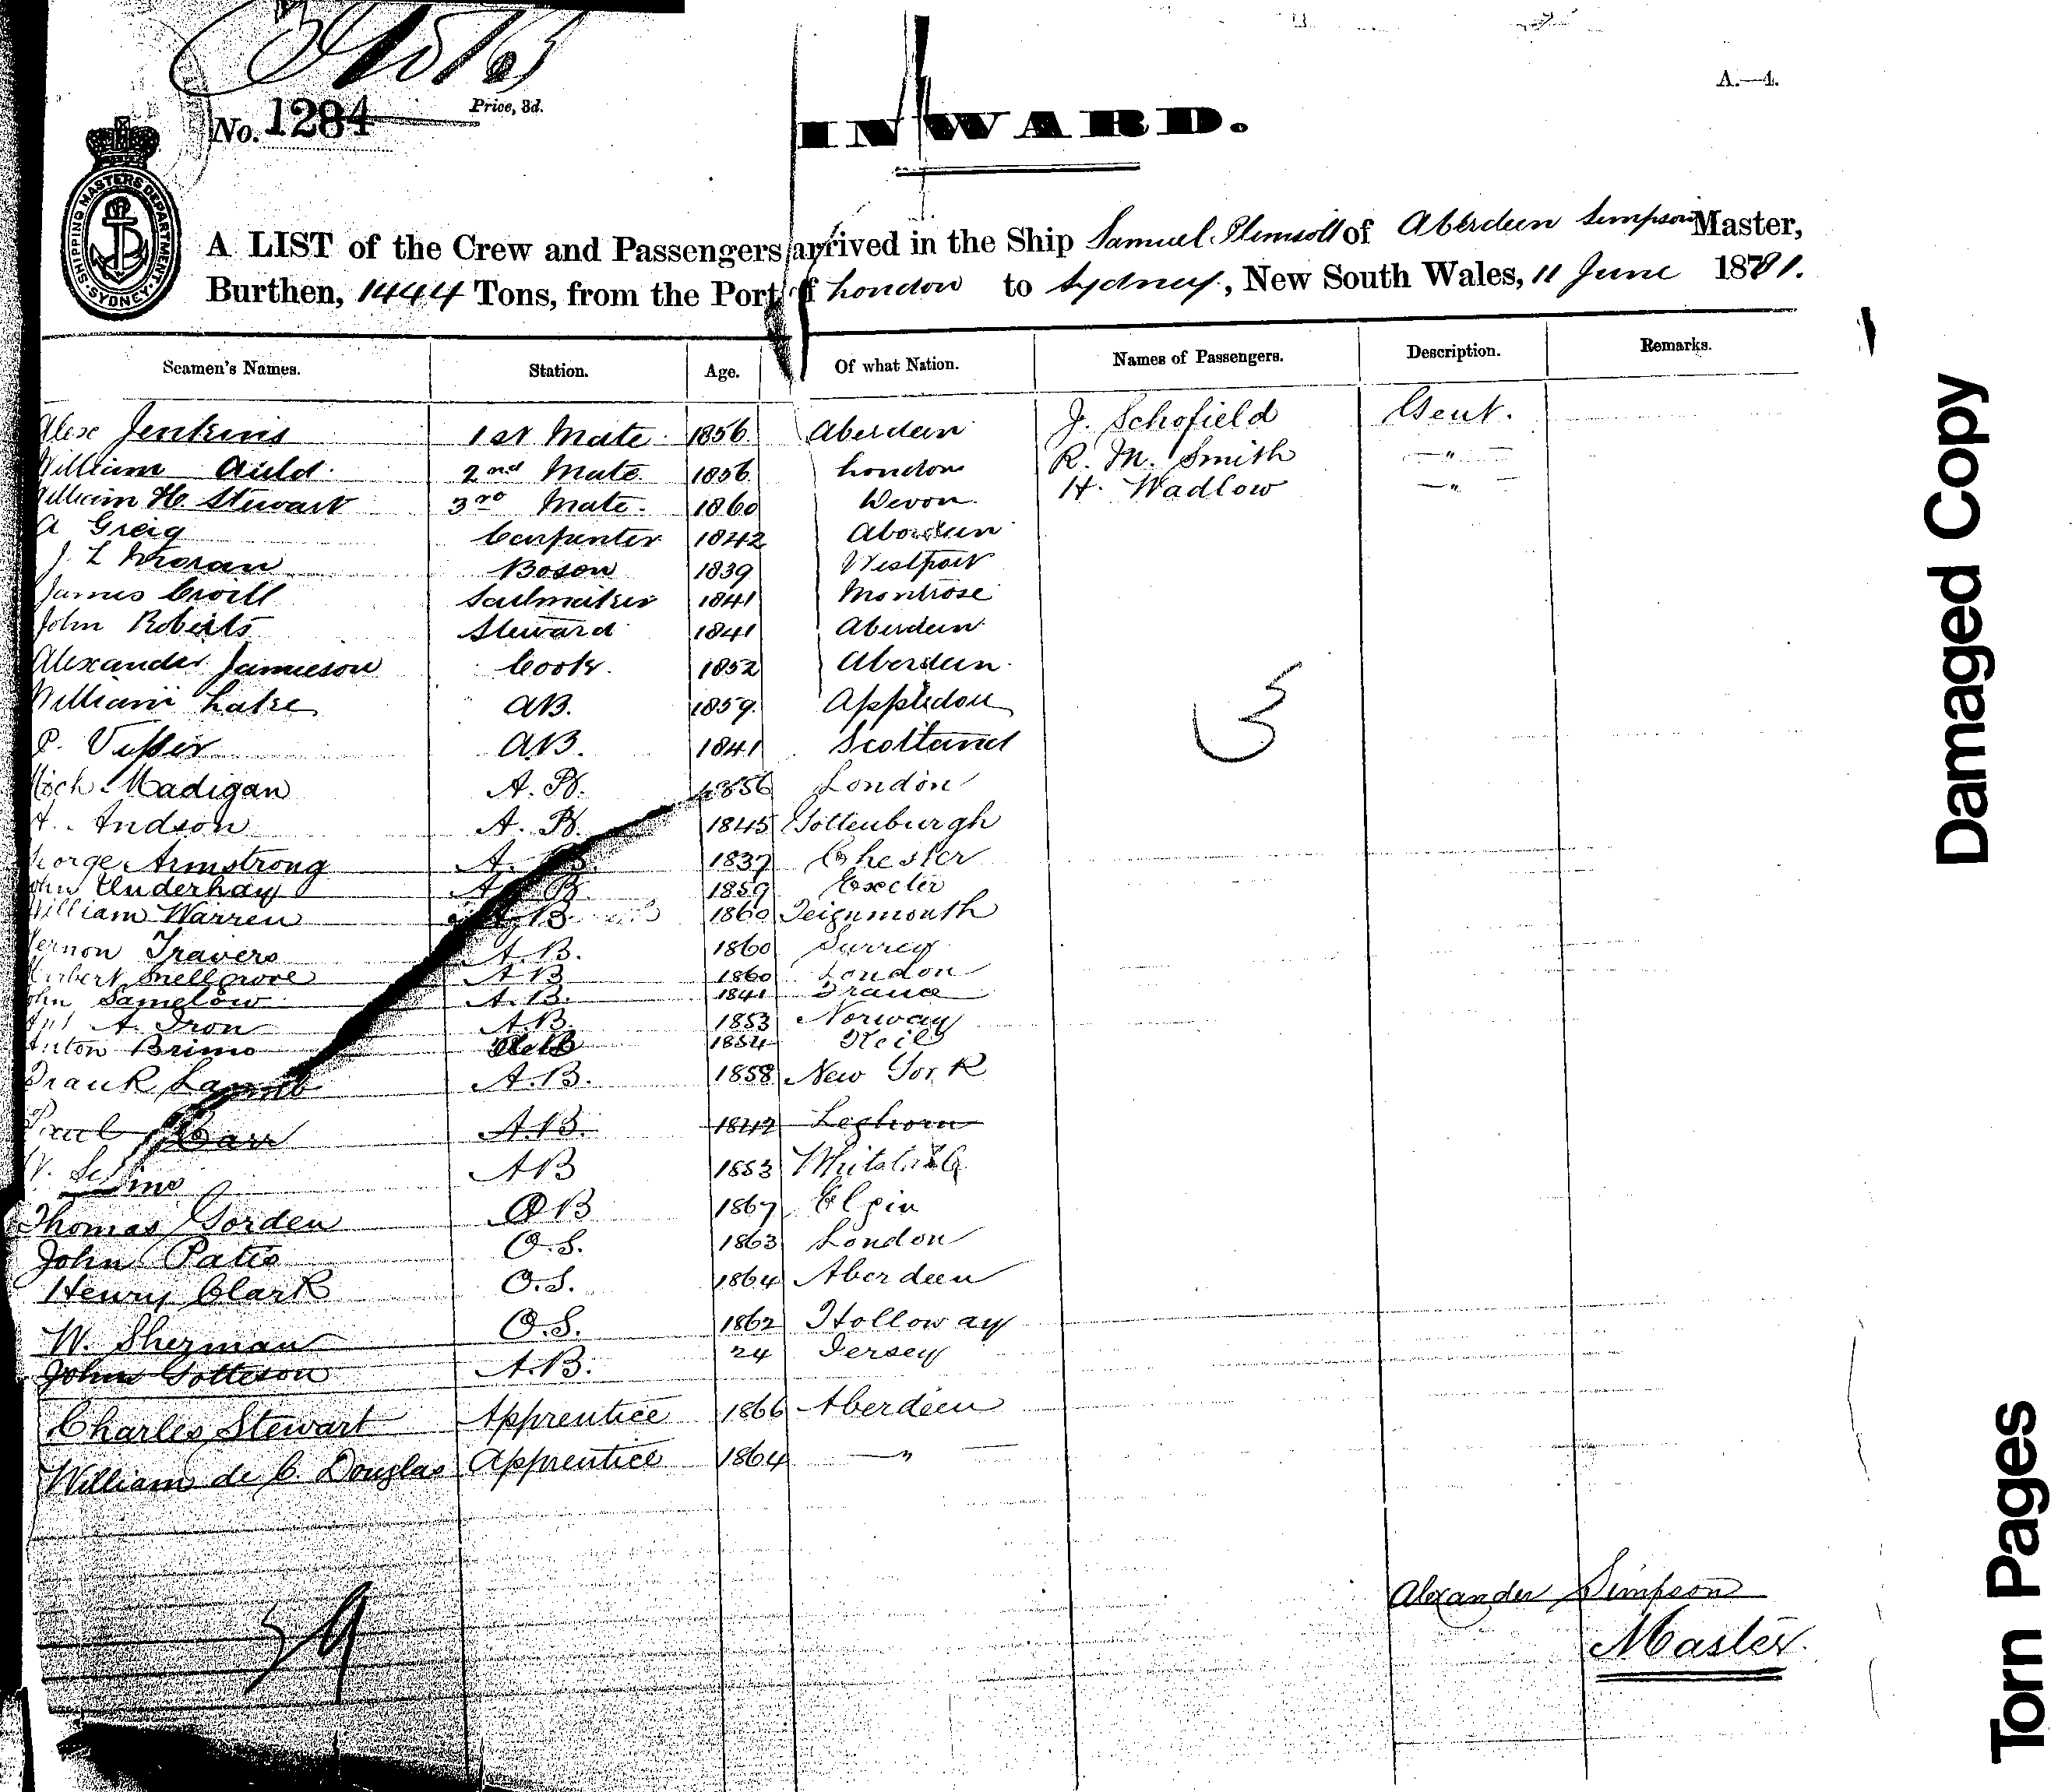 No. 1284
Price, 3d.
A.—4.
INWARD.
SHIPPING MASTERS DEPARTMENT SYDNEY
A LIST of the Crew and Passengers arrived in the Ship Samuel Plimsoll of Aberdeen Simpson Master,
Burthen, 1444 Tons, from the Port of London to Sydney, New South Wales, 11 June 1881.
Seamen's Names. Station. Age. Of what Nation. Names of Passengers. Description. Remarks.
Alex Jenkins 1st Mate 1856 Aberdeen J. Schofield Gent.
William Auld 2nd Mate 1856 London R. M. Smith — " —
William H. Stewart 3rd Mate 1860 Devon H. Wadlow — " —
A Greig Carpenter 1842 Aberdeen
J. L Moran Boson 1839 Westport
James Croill Sailmaker 1841 Montrose
John Roberts Steward 1841 Aberdeen
Alexander Jamieson Cook 1852 Aberdeen
William Lake AB. 1859 Appledou
P. AB. 1841 Scotland
Mich. Madigan A. B. 1856 London
A. Andson A. B. 1845 Gottenburgh
George Armstrong A. B. 1837 Chester
John Underhay A. B. 1859 Execter
William Warren A. B 1860 Teignmouth
Vernon Travers A. B. 1860 Surrey
Herbert Snellgrove AB 1860 London
John Samelow A. B. 1841 France
A. Iron A.B. 1853 Norway
Anton Brimo 1854 Keil
Frank Lamb A.B. 1858 New York
Paul Carr A.B. 1842 Leghorn
W. AB 1853
Thomas Gorden OB 1867 Elgin
John Patis O.S. 1863 London
Henry Clark O.S. 1864 Aberdeen
W. Sherman O.S. 1862 Holloway
John Gotteson A.B. 24 Jersey
Charles Stewart Apprentice 1866 Aberdeen
William de C. Douglas Apprentice 1864 — " —
3
Alexander Simpson
Master
39
Damaged Copy
Torn Pages